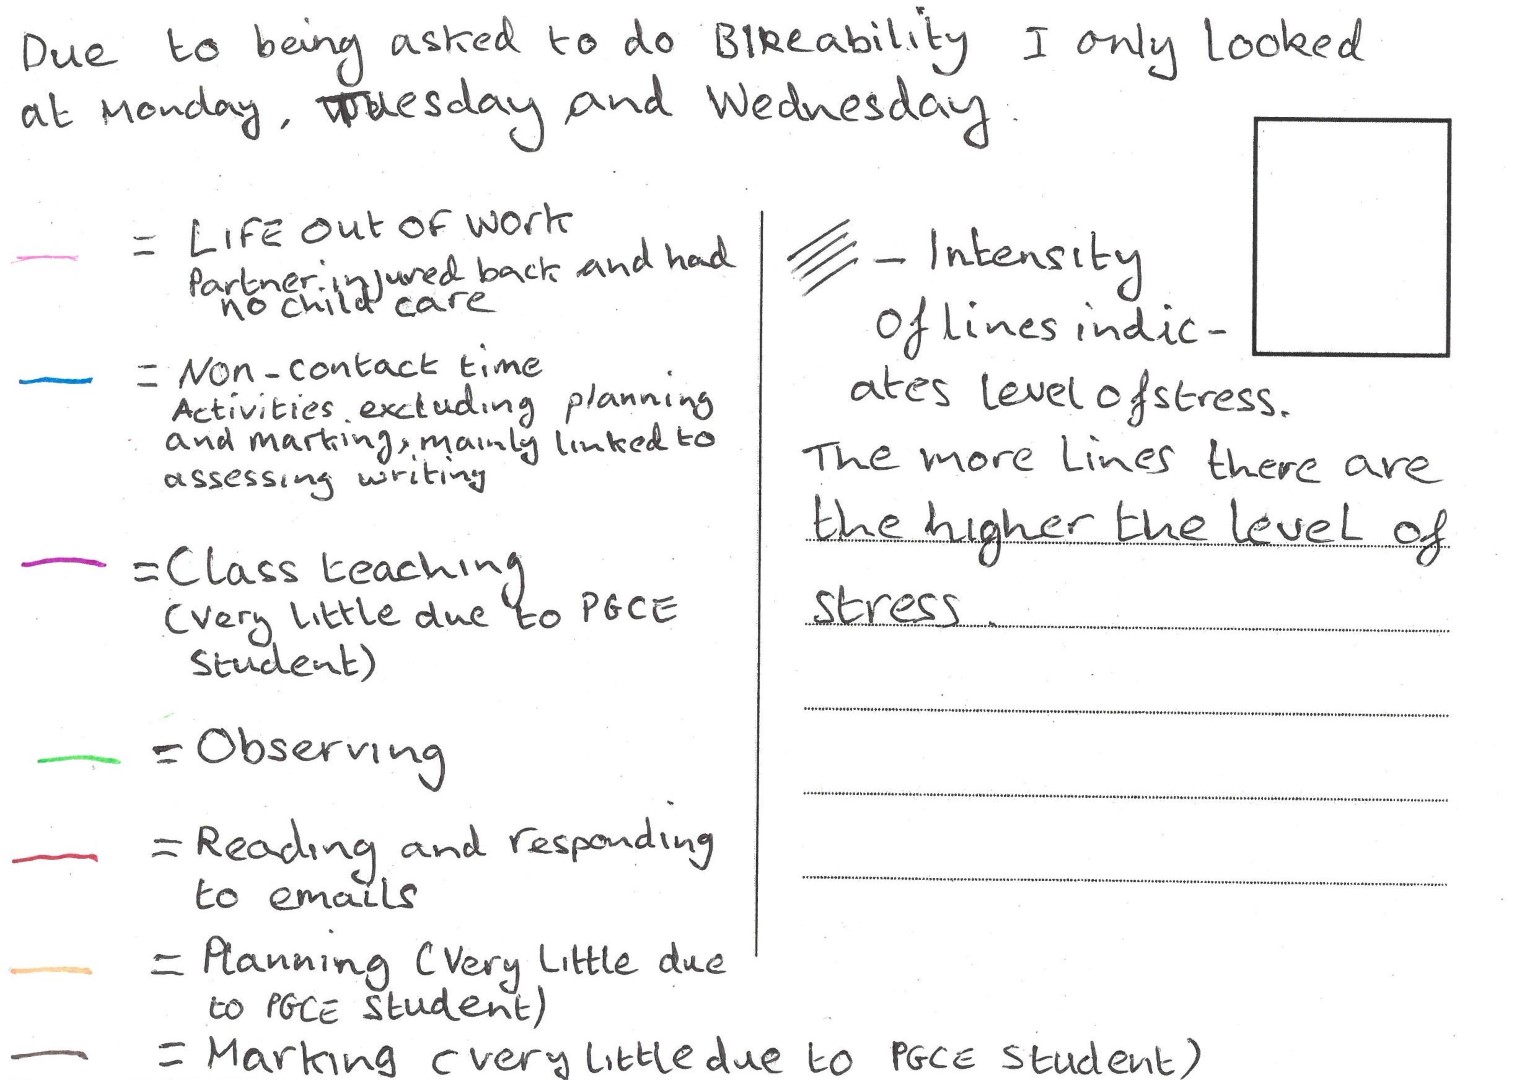 Due to being asked to do BIKeability I only looked
at Monday, Tuesday and Wednesday.
= LIFE out OF work
Partner injured back and had
no child care
= Non-contact time
Activities excluding planning
and marking, mainly linked to
assessing writing
= Class teaching
(very little due to PGCE
student)
= Observing
= Reading and responding
to emails
= Planning (Very little due
to PGCE student)
= Marking (very little due to PGCE student)
- Intensity
of lines indic-
ates level of stress.
The more lines there are
the higher the level of
stress.